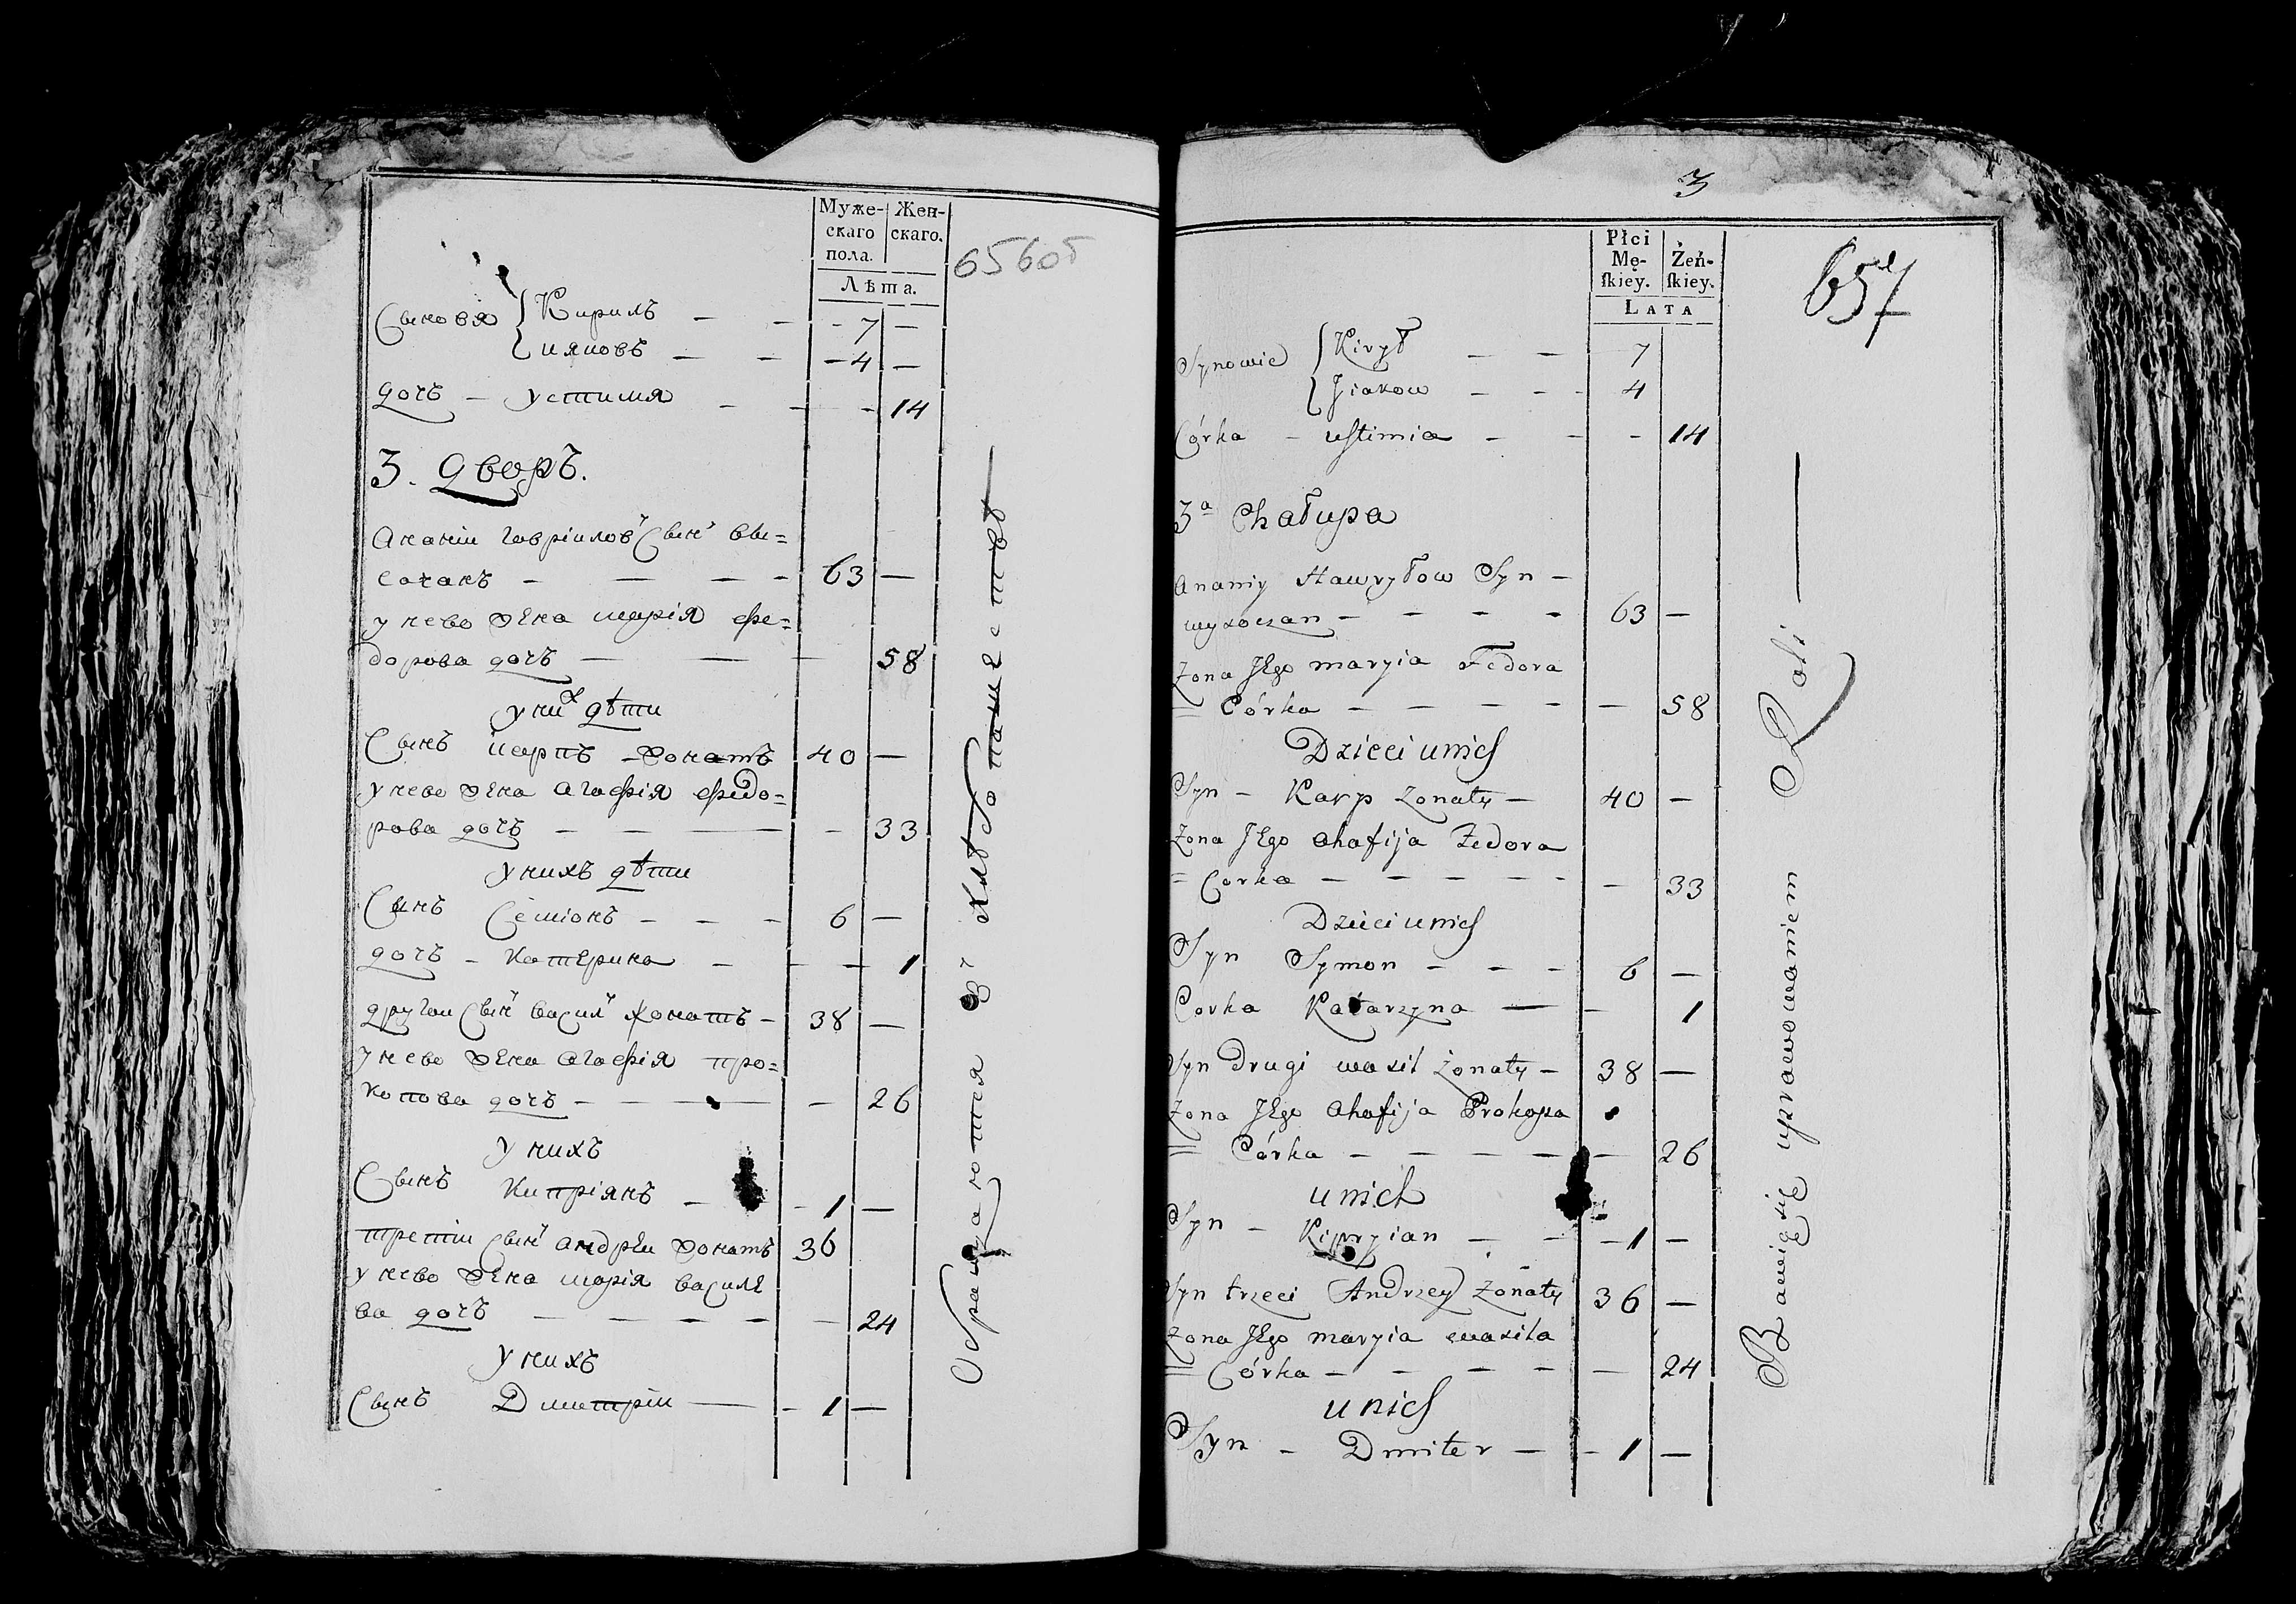 Муже-
скаго
пола.
Жен-
скаго.
Лѣта.
656об
Сыновя { Кирилъ — — - 7 —
ияковъ — — - 4 —
дочь — устимия — — - 14
3. дворъ.
Анании гавріиловъ Сынъ вы=
сочанъ — — — - 63 —
у нево жена марія фе=
дорова дочь — — — 58
у них дѣти
Сынъ карпъ жонатъ 40 —
у нево жена агафія федо=
рова дочь — — — - 33
у нихъ дѣти
Сынъ Семіонъ — — - 6 —
дочь — катерина — — — 1
другои Сынъ васил жонатъ — 38 —
у нево жена агафія про=
копова дочь — — — — 26
у нихъ
Сынъ Кипріянъ — - 1 —
третіи Сынъ андреи жонатъ 36
у нево жена марія василе
ва дочь — — — — — 24
у нихъ
Сынъ Дмитріи — - 1 —
Обращаютця въ хлѣбопашествѣ —
3
Płci
Mę-
skiey.
Żeń-
skiey.
LATA
657
Synowie { Kirył — — 7
Jiakow — - - 4
Córka — ustimia — — - 14
3a Chałupa
Ananiy Hawryłow Syn —
wysoczan — — — — 63 —
Zona JEgo maryia Fedora
= Córka — — — — — 58
Dzieci unich
Syn — Karp Zonaty — 40 —
Zona JEgo ahafija Fedora
= Corka — — — — - — 33
Dzieci unich
Syn Symon — — — 6 —
Corka Katarzyna — — 1
Syn Drugi wasil żonaty — 38 —
Zona JEgo ahafija Prokopa
= Córka — — — — — 26
unich
Syn — Kipryian — — — 1 —
Syn trzeci Andrzey Żonaty 36 —
Zona JEgo maryia wasila
= Córka — — — — — 24
unich
Syn — Dmiter — — 1 —
Bawią się uprawowaniem Roli —